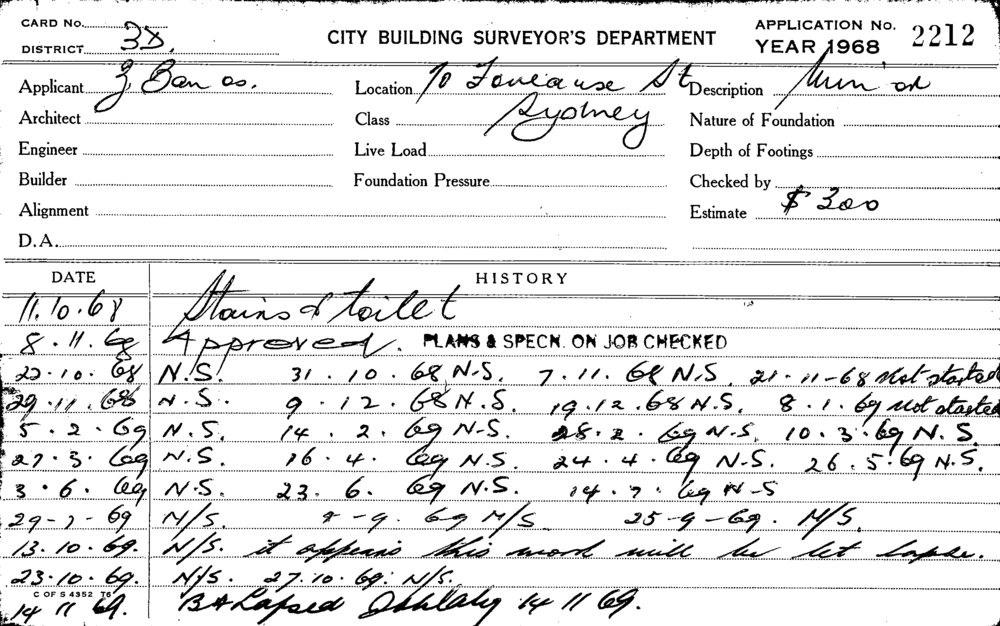 CARD No.
DISTRICT 3D.
CITY BUILDING SURVEYOR'S DEPARTMENT
APPLICATION No. 2212
YEAR 1968
Applicant
Location 70 Foveaux St Sydney
Description
Architect
Class
Nature of Foundation
Engineer
Live Load
Depth of Footings
Builder
Foundation Pressure
Checked by
Alignment
Estimate $ 300
D.A.
DATE HISTORY
11.10.68 Stairs & toilet
8.11.68 Approved. PLANS & SPECN. ON JOB CHECKED
22.10.68 N.S. 31.10.68 N.S. 7.11.68 N.S. 21-11-68 Not started
29.11.68 N.S. 9.12.68 N.S. 19.12.68 N.S. 8.1.69 not started
5.2.69 N.S. 14.2.69 N.S. 28.2.69 N.S. 10.3.69 N.S.
27.3.69 N.S. 16.4.69 N.S. 24.4.69 N.S. 26.5.69 N.S.
3.6.69 N.S. 23.6.69 N.S. 14.7.69 N-S
29-7-69 N/S. 69 N/S 25-9-69. N/S.
13.10.69. N/S. it appears this work will be let lapse.
23.10.69. N/S. 27.10.69. N/S.
C OF S 4352 T6
14 11 69. BA Lapsed 14 11 69.